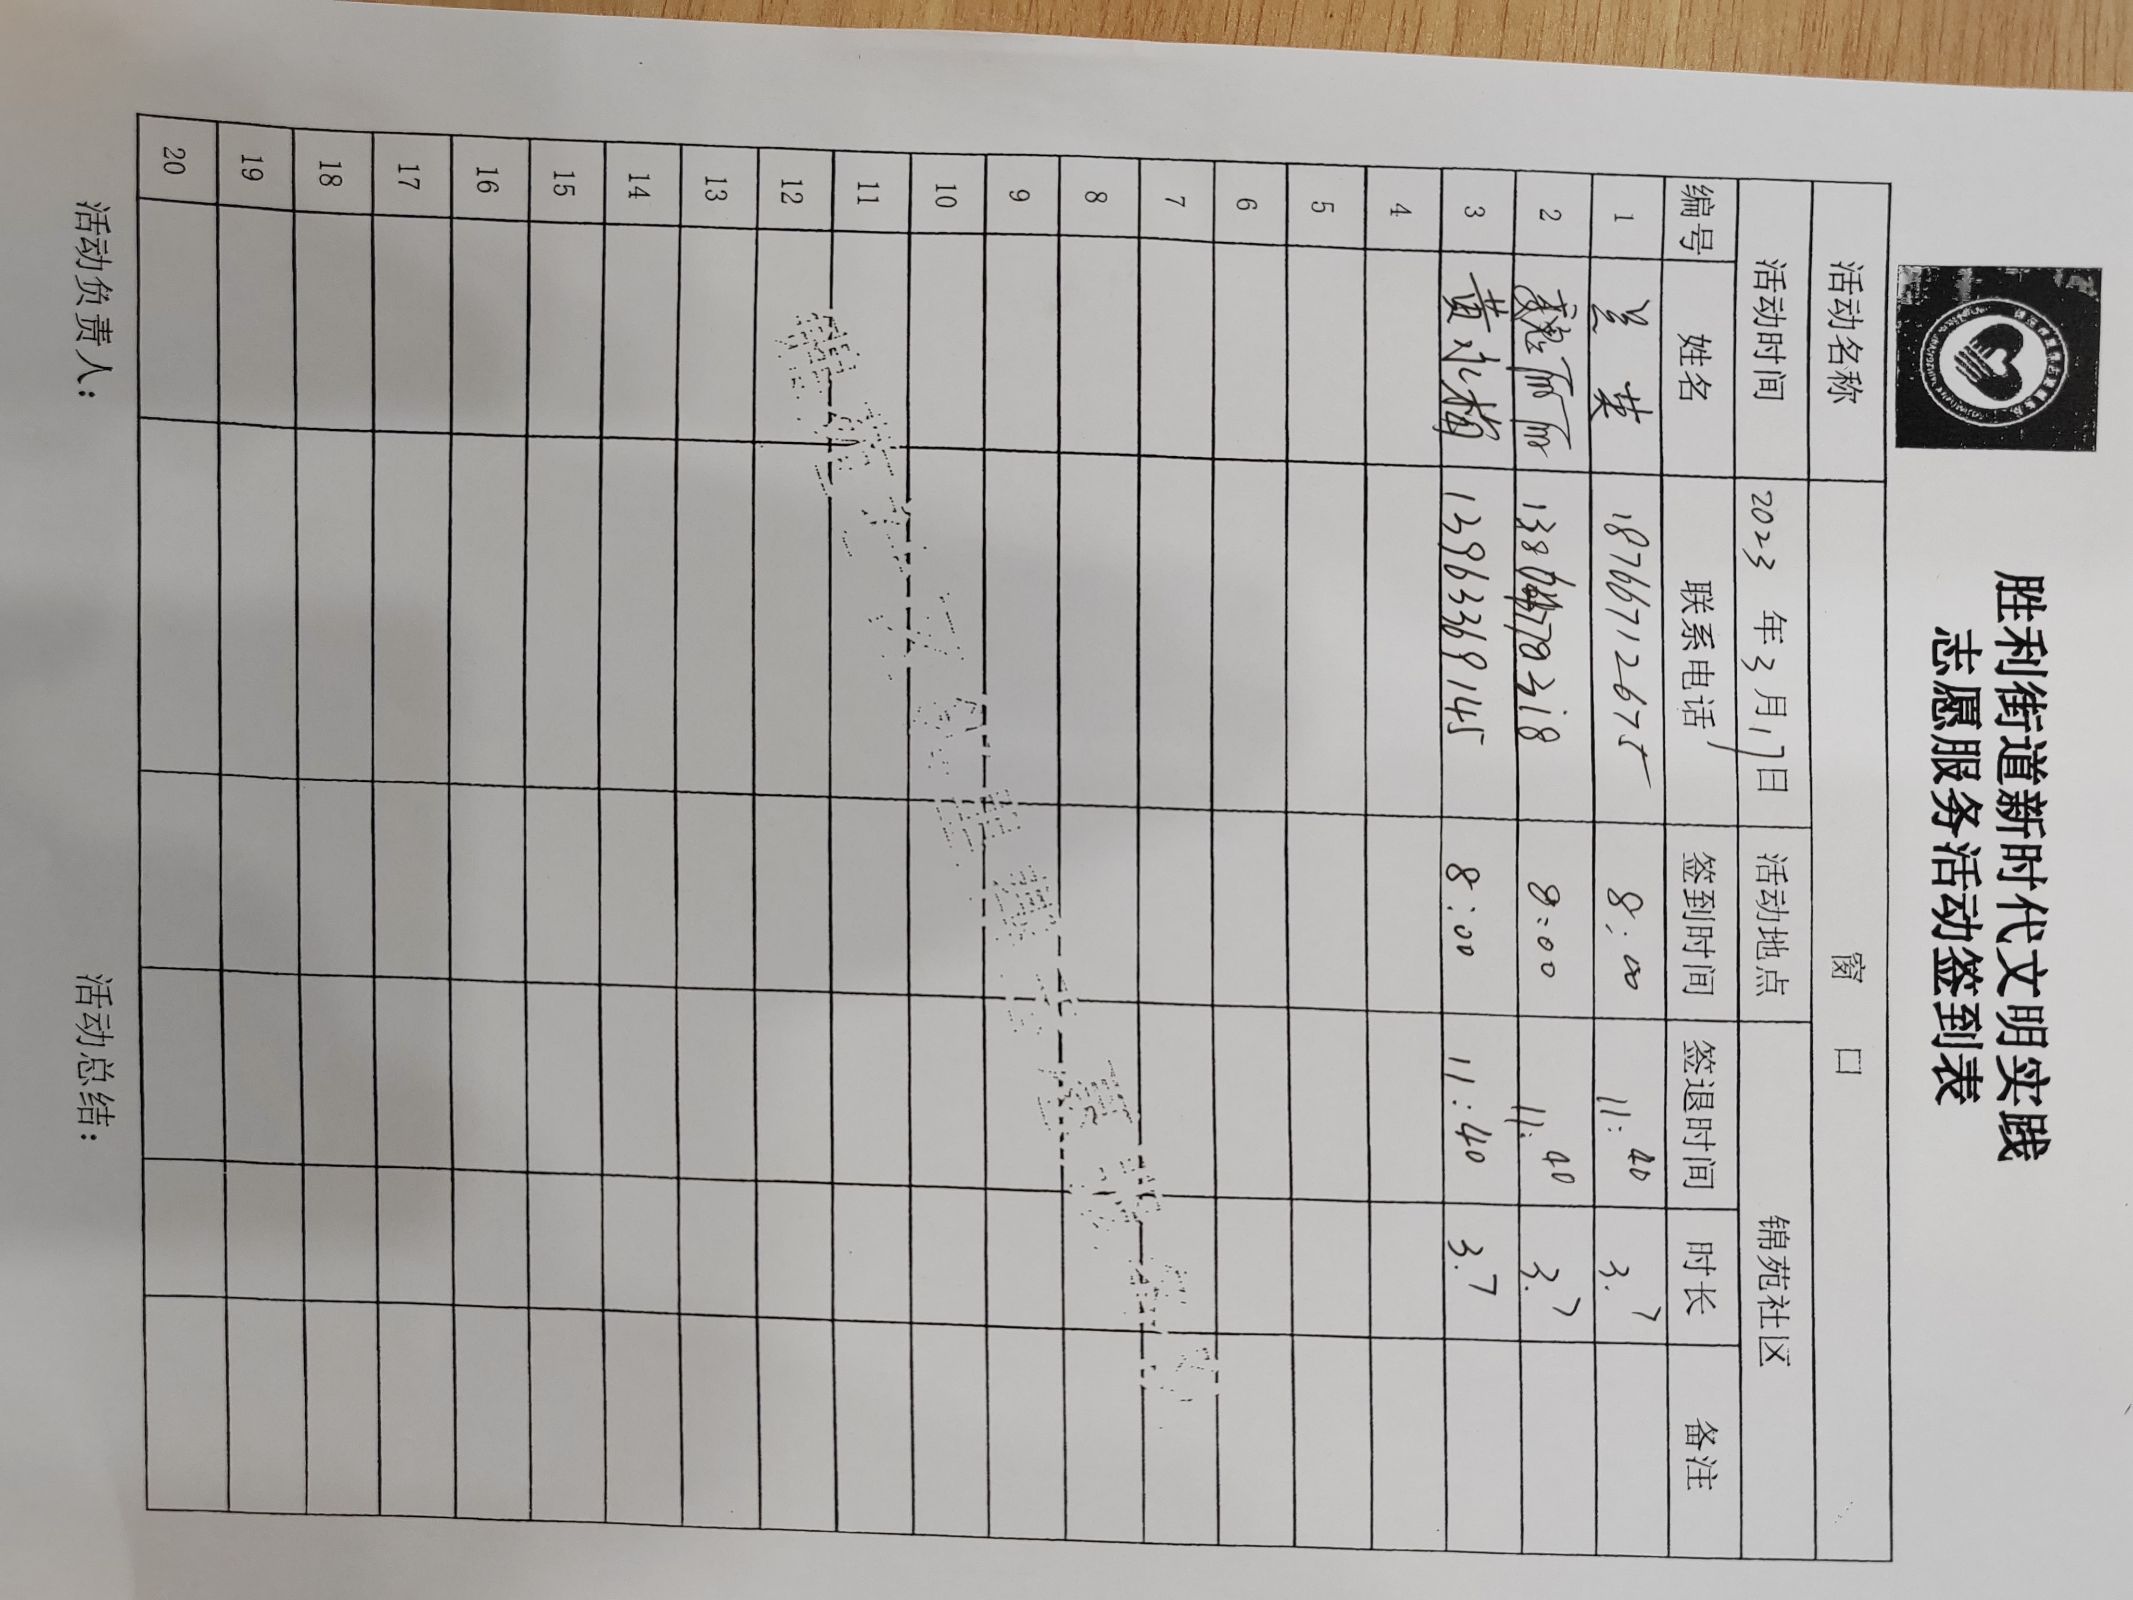 胜利街道新时代文明实践
志愿服务活动签到表
活动名称 窗 口
活动时间 2023 年 3 月 17 日 活动地点 锦苑社区
编号 姓名 联系电话 签到时间 签退时间 时长 备注
1 兰英 18766712675 8:00 11:40 3.7
2 魏丽丽 8:00 11:40 3.7
3 黄永梅 13963369145 8:00 11:40 3.7
4
5
6
7
8
9
10
11
12
13
14
15
16
17
18
19
20
活动负责人: 活动总结: